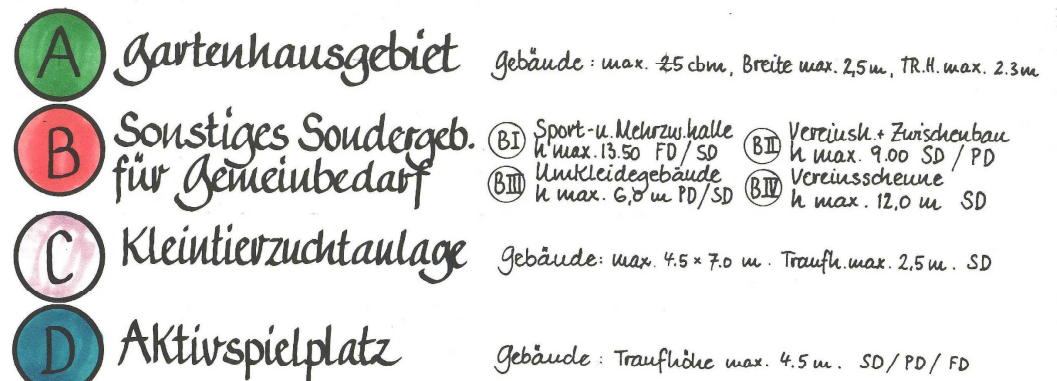 A Gartenhausgebiet Gebäude: max. 25 cbm, Breite max. 2,5 m, TR.H. max. 2.3 m
B Sonstiges Sondergeb. für Gemeinbedarf
BI Sport-u. Mehrzw.halle
h max. 13.50 FD/SD
BII Vereinsh. + Zwischenbau
h max. 9.00 SD / PD
BIII Umkleidegebäude
h max. 6,0 m PD/SD
BIV Vereinsscheune
h max. 12,0 m SD
C Kleintierzuchtanlage Gebäude: max. 4.5 x 7.0 m. Traufh. max. 2,5 m. SD
D Aktivspielplatz Gebäude: Traufhöhe max. 4.5 m. SD / PD / FD